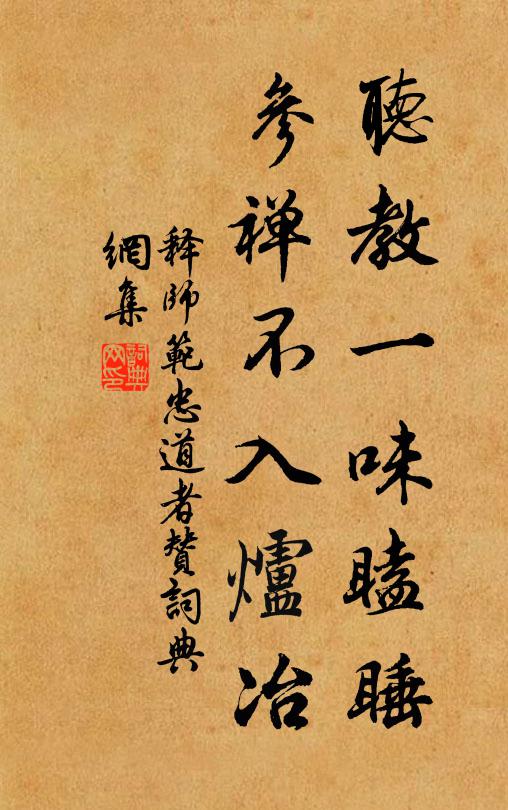 聽教一味瞌睡
參禅不入爐冶
釋師範忠道者贊詞典
網集
詞典
网印